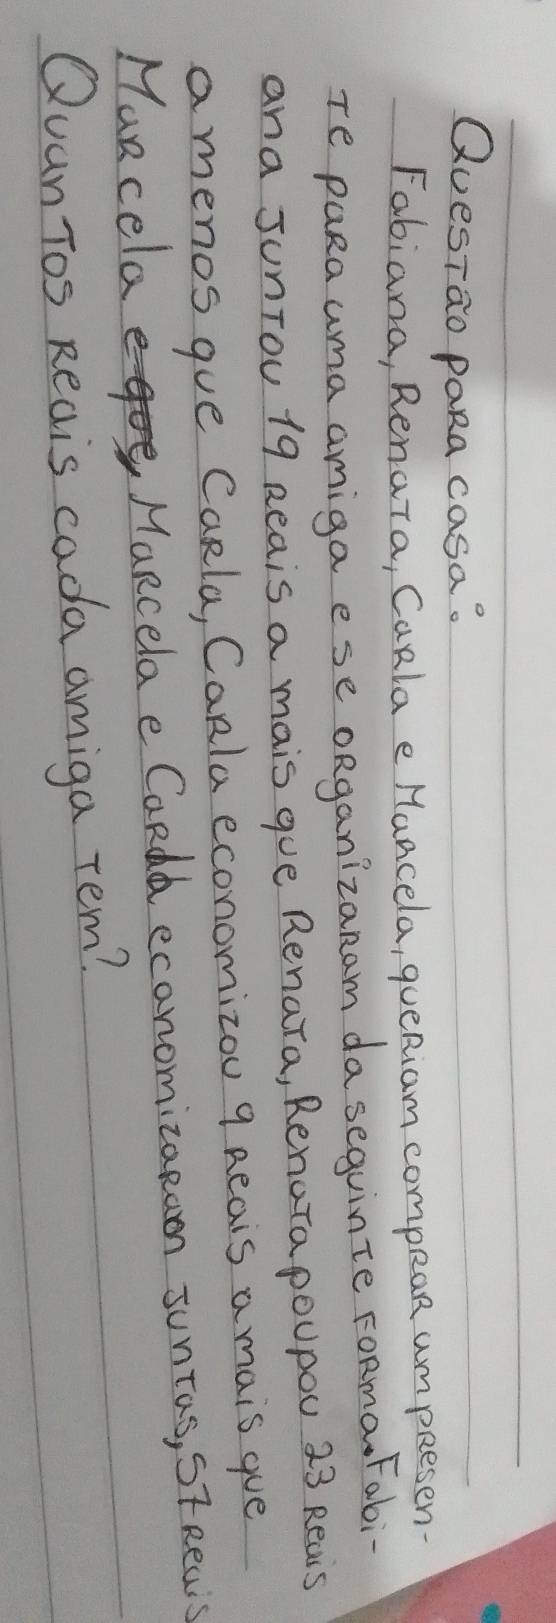 Questão para casa:
Fabiana, Renata, Carla e Marcela, queriam comprar um presen-
te para uma amiga e se organizaram da seguinte forma. Fabi-
ana juntou 19 reais a mais que Renata, Renata poupou 23 reais
a menos que Carla, Carla economizou 9 reais a mais que
Marcela e que, Marcela e Carla economizaram juntas, 57 reais
Quantos reais cada amiga tem?